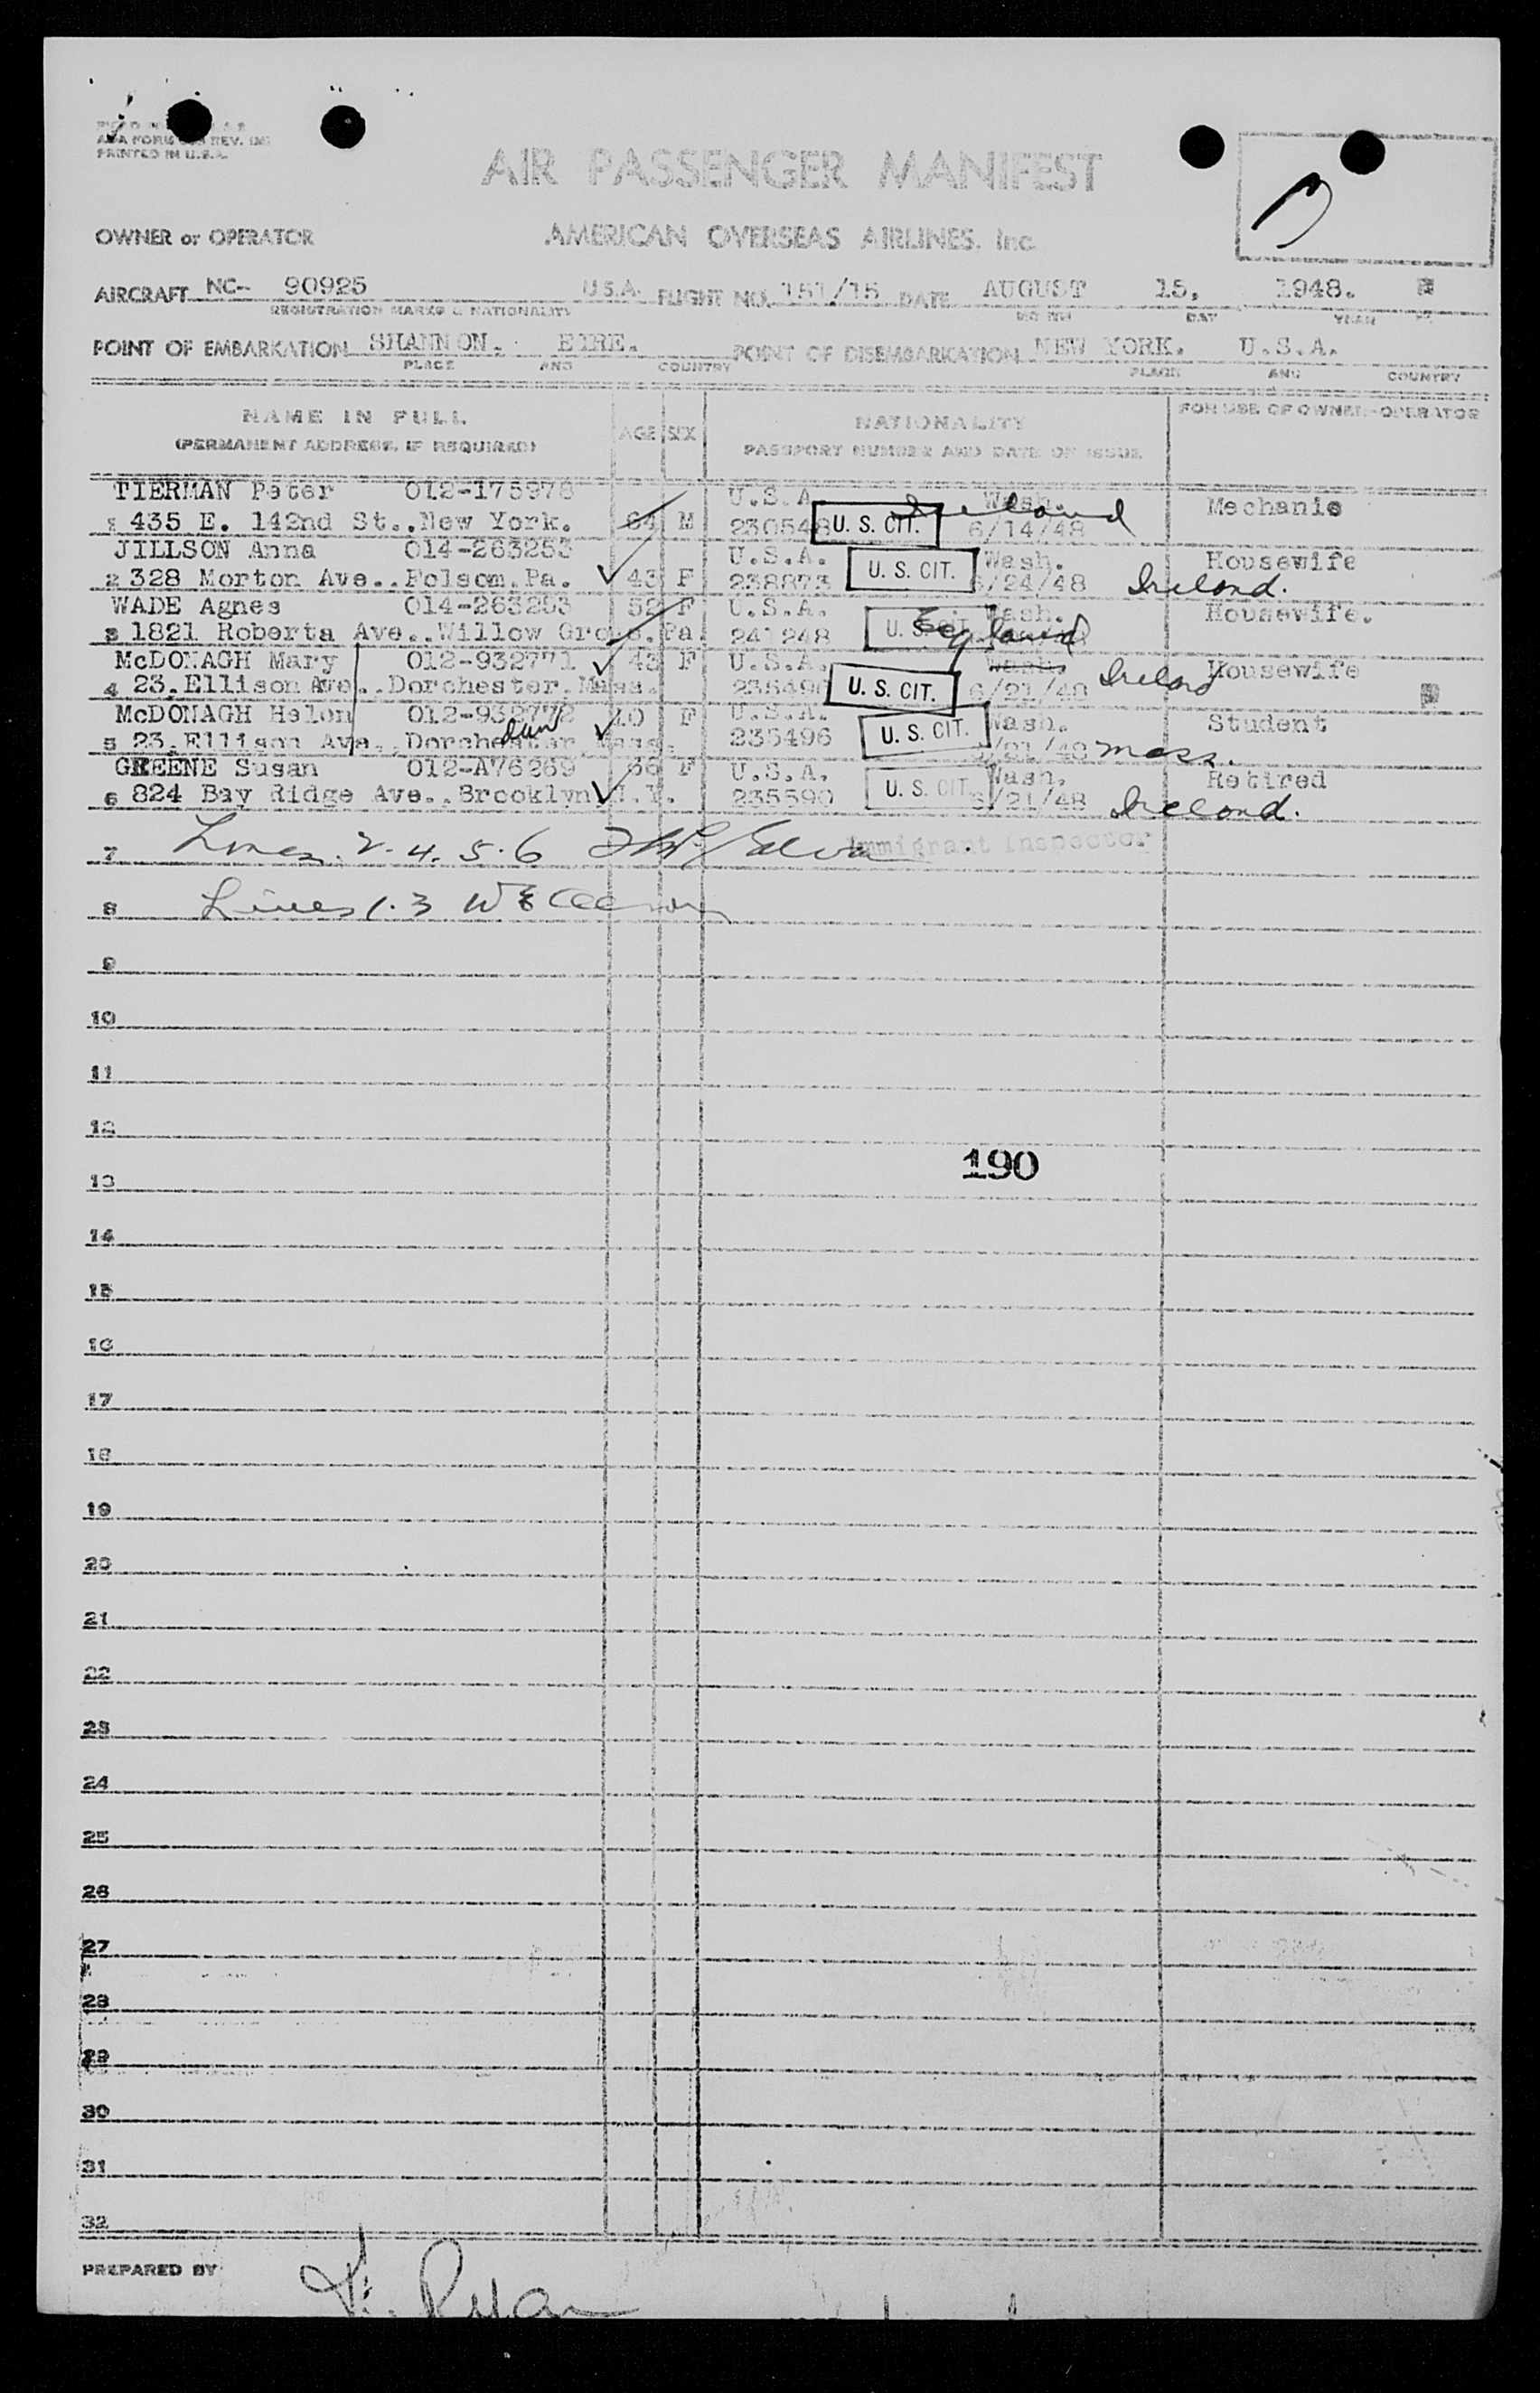 PRINTED IN U.S.A.
AIR PASSENGER MANIFEST
OWNER or OPERATOR AMERICAN OVERSEAS AIRLINES. Inc
AIRCRAFT NC- 90925 U.S.A. FLIGHT NO. 151/15 DATE AUGUST 15, 1948.
REGISTRATION MARKS & NATIONALITY MONTH DAY YEAR
POINT OF EMBARKATION SHANNON. EIRE. POINT OF DISEMBARKATION NEW YORK. U.S.A.
PLACE AND COUNTRY PLACE AND COUNTRY
NAME IN FULL AGE SEX NATIONALITY FOR USE OF OWNER-OPERATOR
(PERMANENT ADDRESS, IF REQUIRED) PASSPORT NUMBER AND DATE OF ISSUE
TIERMAN Peter 012-175978 U.S.A. Wash. Ireland Mechanic
1 435 E. 142nd St..New York. 64 M 230548 U. S. CIT. 6/14/48
JILLSON Anna 014-263253 U.S.A. Wash. Housewife
2 328 Morton Ave..Folsom.Pa. 43 F 238873 U. S. CIT. 6/24/48 Ireland.
WADE Agnes 014-263203 52 F U.S.A. Wash. Housewife.
3 1821 Roberta Ave..Willow Grove.Pa. 241248 U. S. CIT. England
McDONAGH Mary 012-932771 43 F U.S.A. Wash. Ireland Housewife
4 23.Ellison Ave..Dorchester.Mass. 235490 U. S. CIT. 6/21/48
McDONAGH Helen 012-932772 10 F U.S.A. Wash. Student
5 23.Ellison Ave..Dorchester.Mass. 235496 U. S. CIT. 6/21/48 Mass.
GREENE Susan 012-A76269 66 F U.S.A. Wash. Retired
6 824 Bay Ridge Ave..Brooklyn N.Y. 235590 U. S. CIT. 6/21/48 Ireland.
7 Lines. 2-4.5.6 Immigrant Inspector
8 Lines 1.3
9
10
11
12
190
13
14
15
16
17
18
19
20
21
22
23
24
25
26
27
28
29
30
31
32
PREPARED BY Ryan